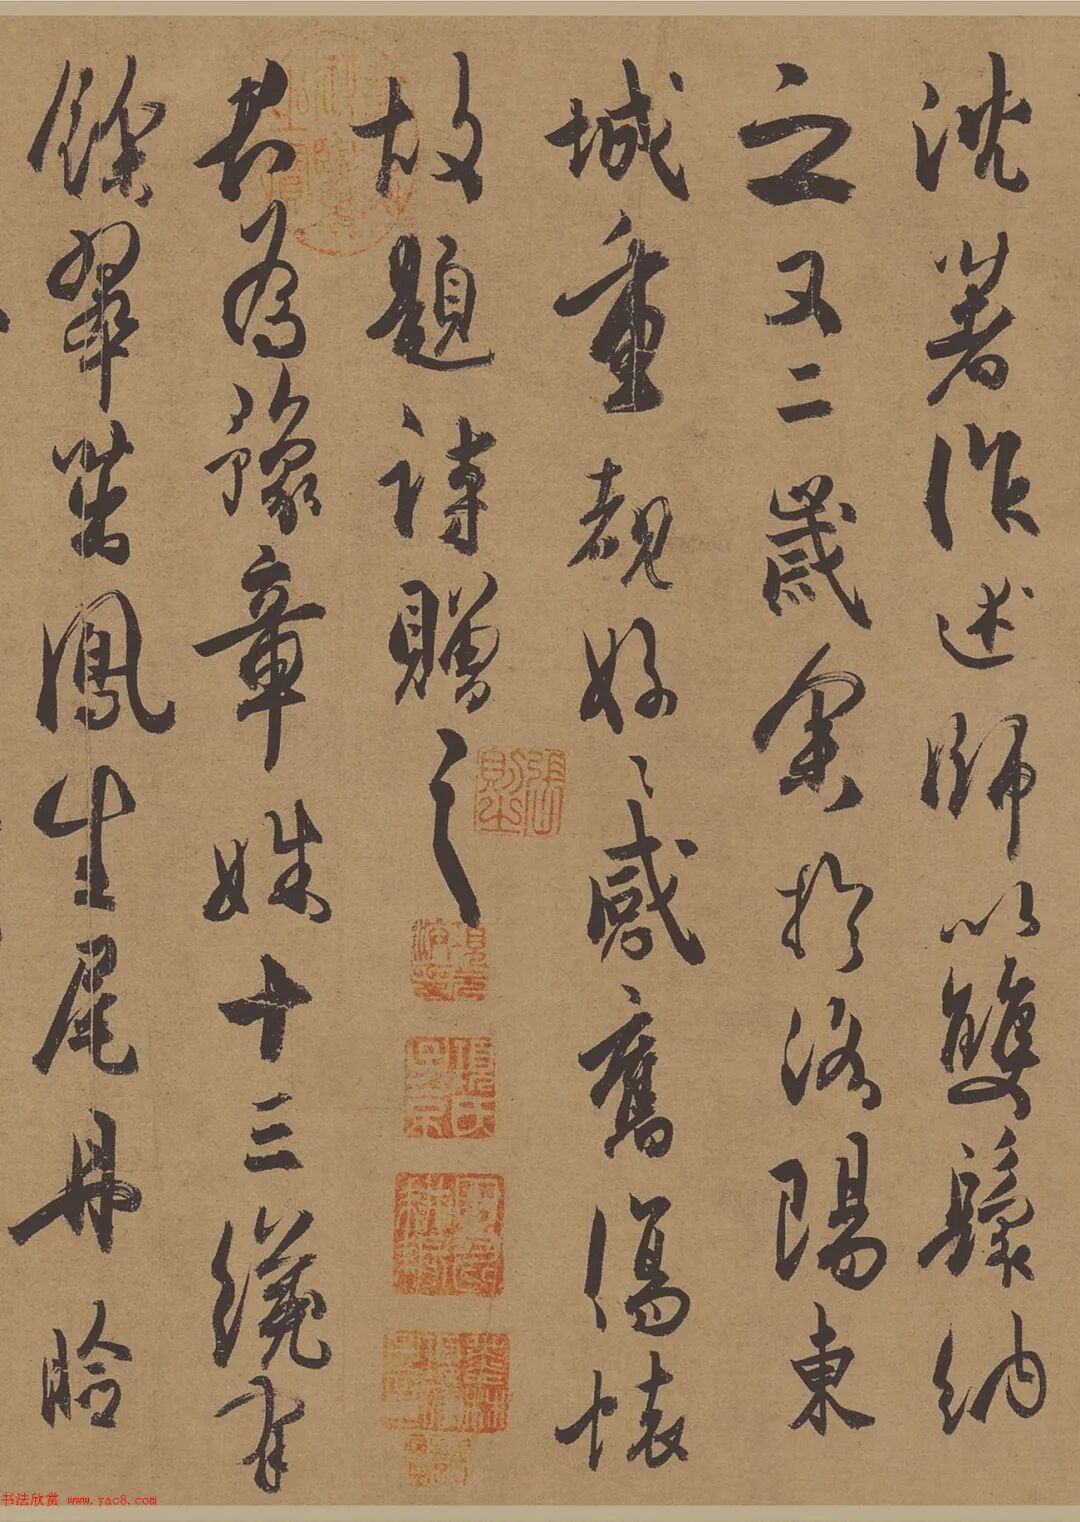 沈著作述師以雙鬟納
之又二歲余於洛陽東
城重覩好〻感舊傷懷
故題詩贈之
君為豫章姝十三纔有
餘翠茁鳳生尾丹臉
书法欣赏 www.yac8.com